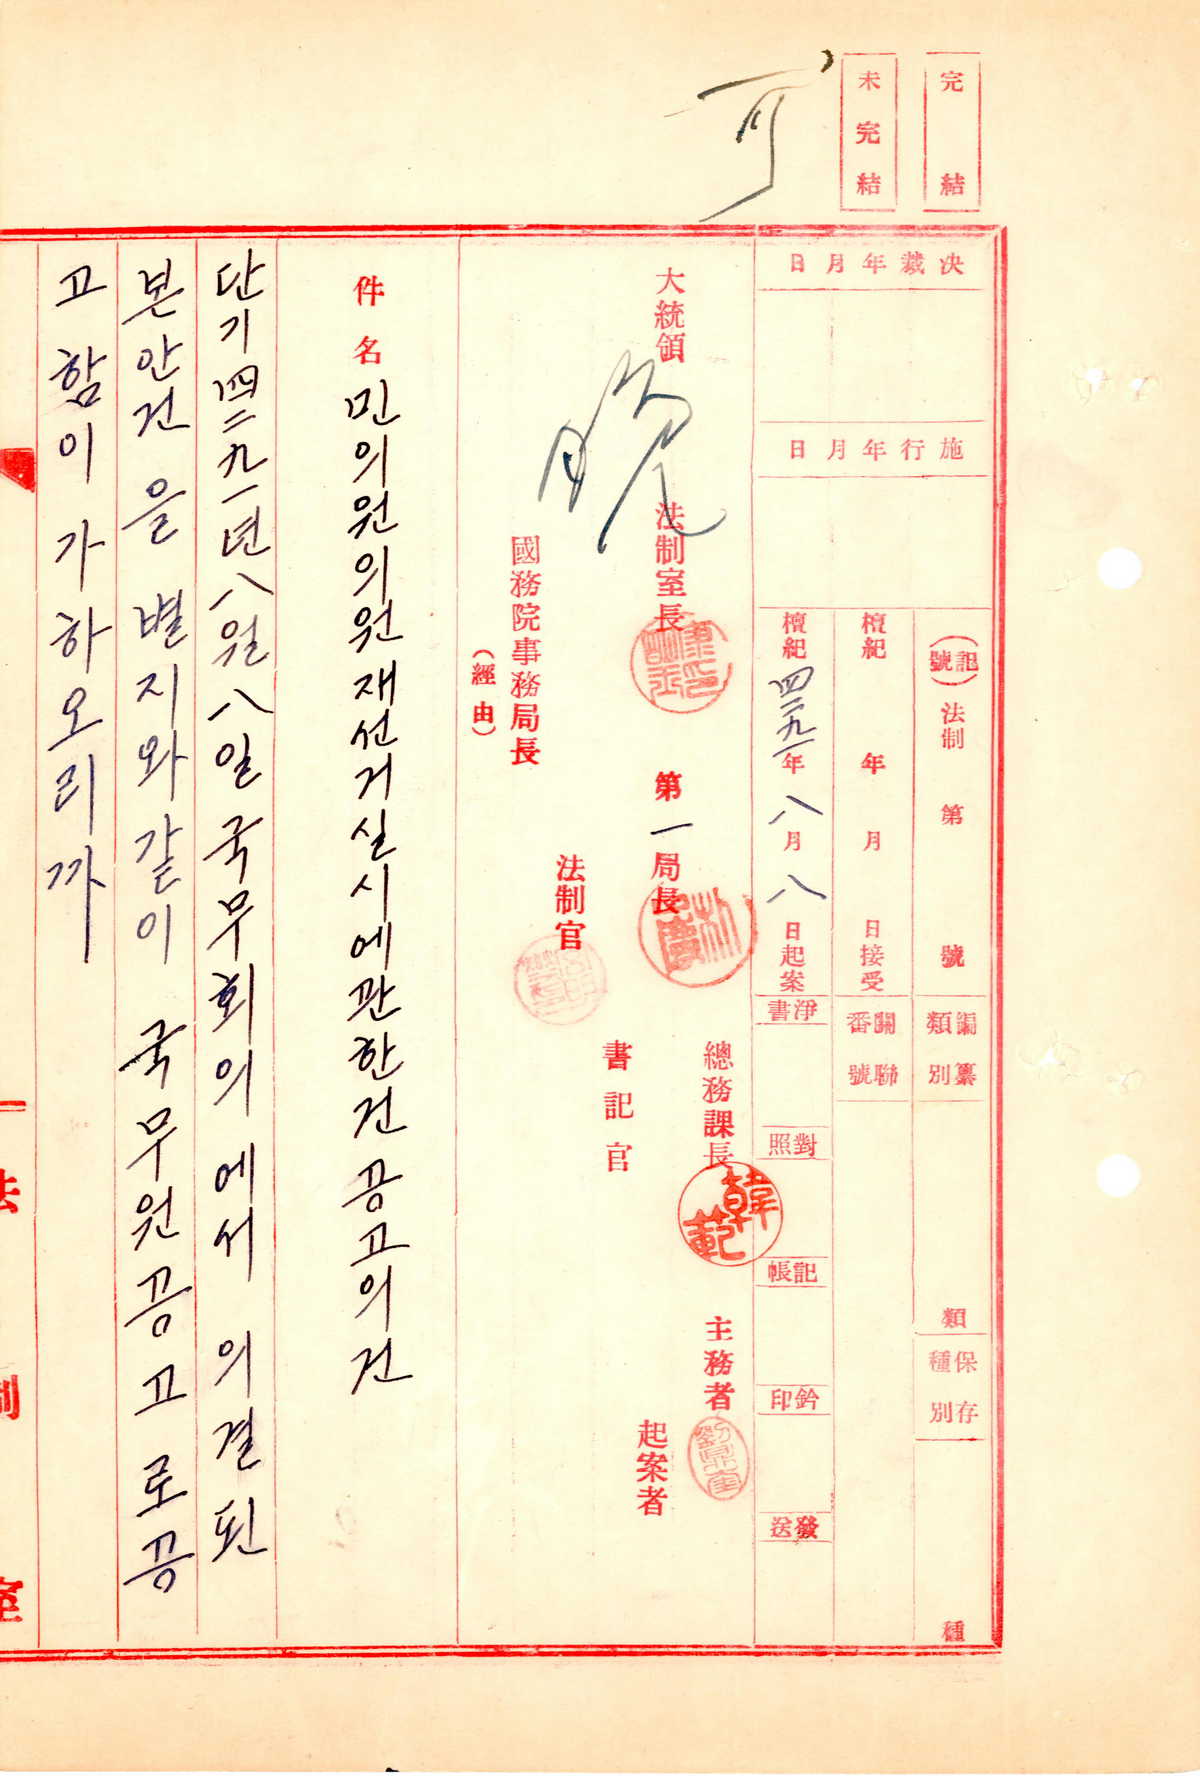 完結
未完結
可
決裁年月日
施行年月日
(記號) 法制 第 號
編纂類別 類
保存種別 種
檀紀 年 月 日接受
關聯番號
檀紀 四二九一年 八月 八日起案
淨書
對照
記帳
鈐印
發送
大統領
晩
法制室長
第一局長
總務課長
韓範
主務者
法制官
書記官
起案者
國務院事務局長
(經由)
件名 민의원의원재선거실시에관한건공고의건
단기四二九一年八월八일국무회의에서 의결된
본안건을 별지와같이 국무원공고로공
고함이가하오리까
法制室